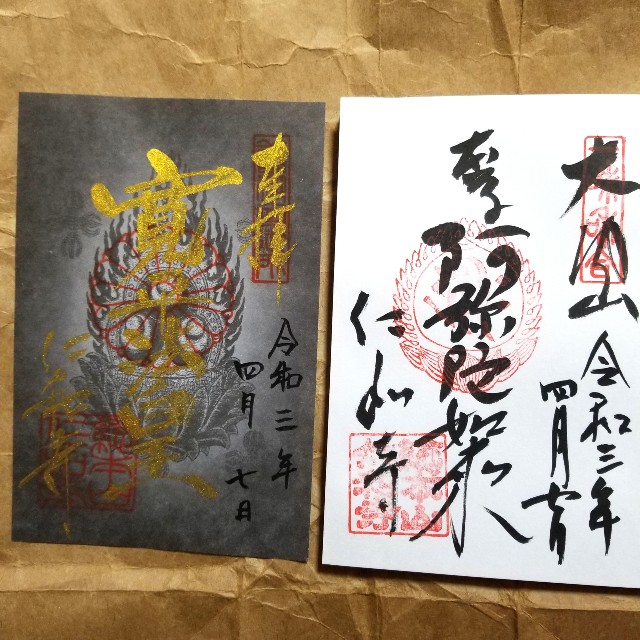 奉拝
令和三年
四月
七日
寛平法皇
仁和寺
大内山
令和三年
四月七日
阿弥陀如来
仁和寺